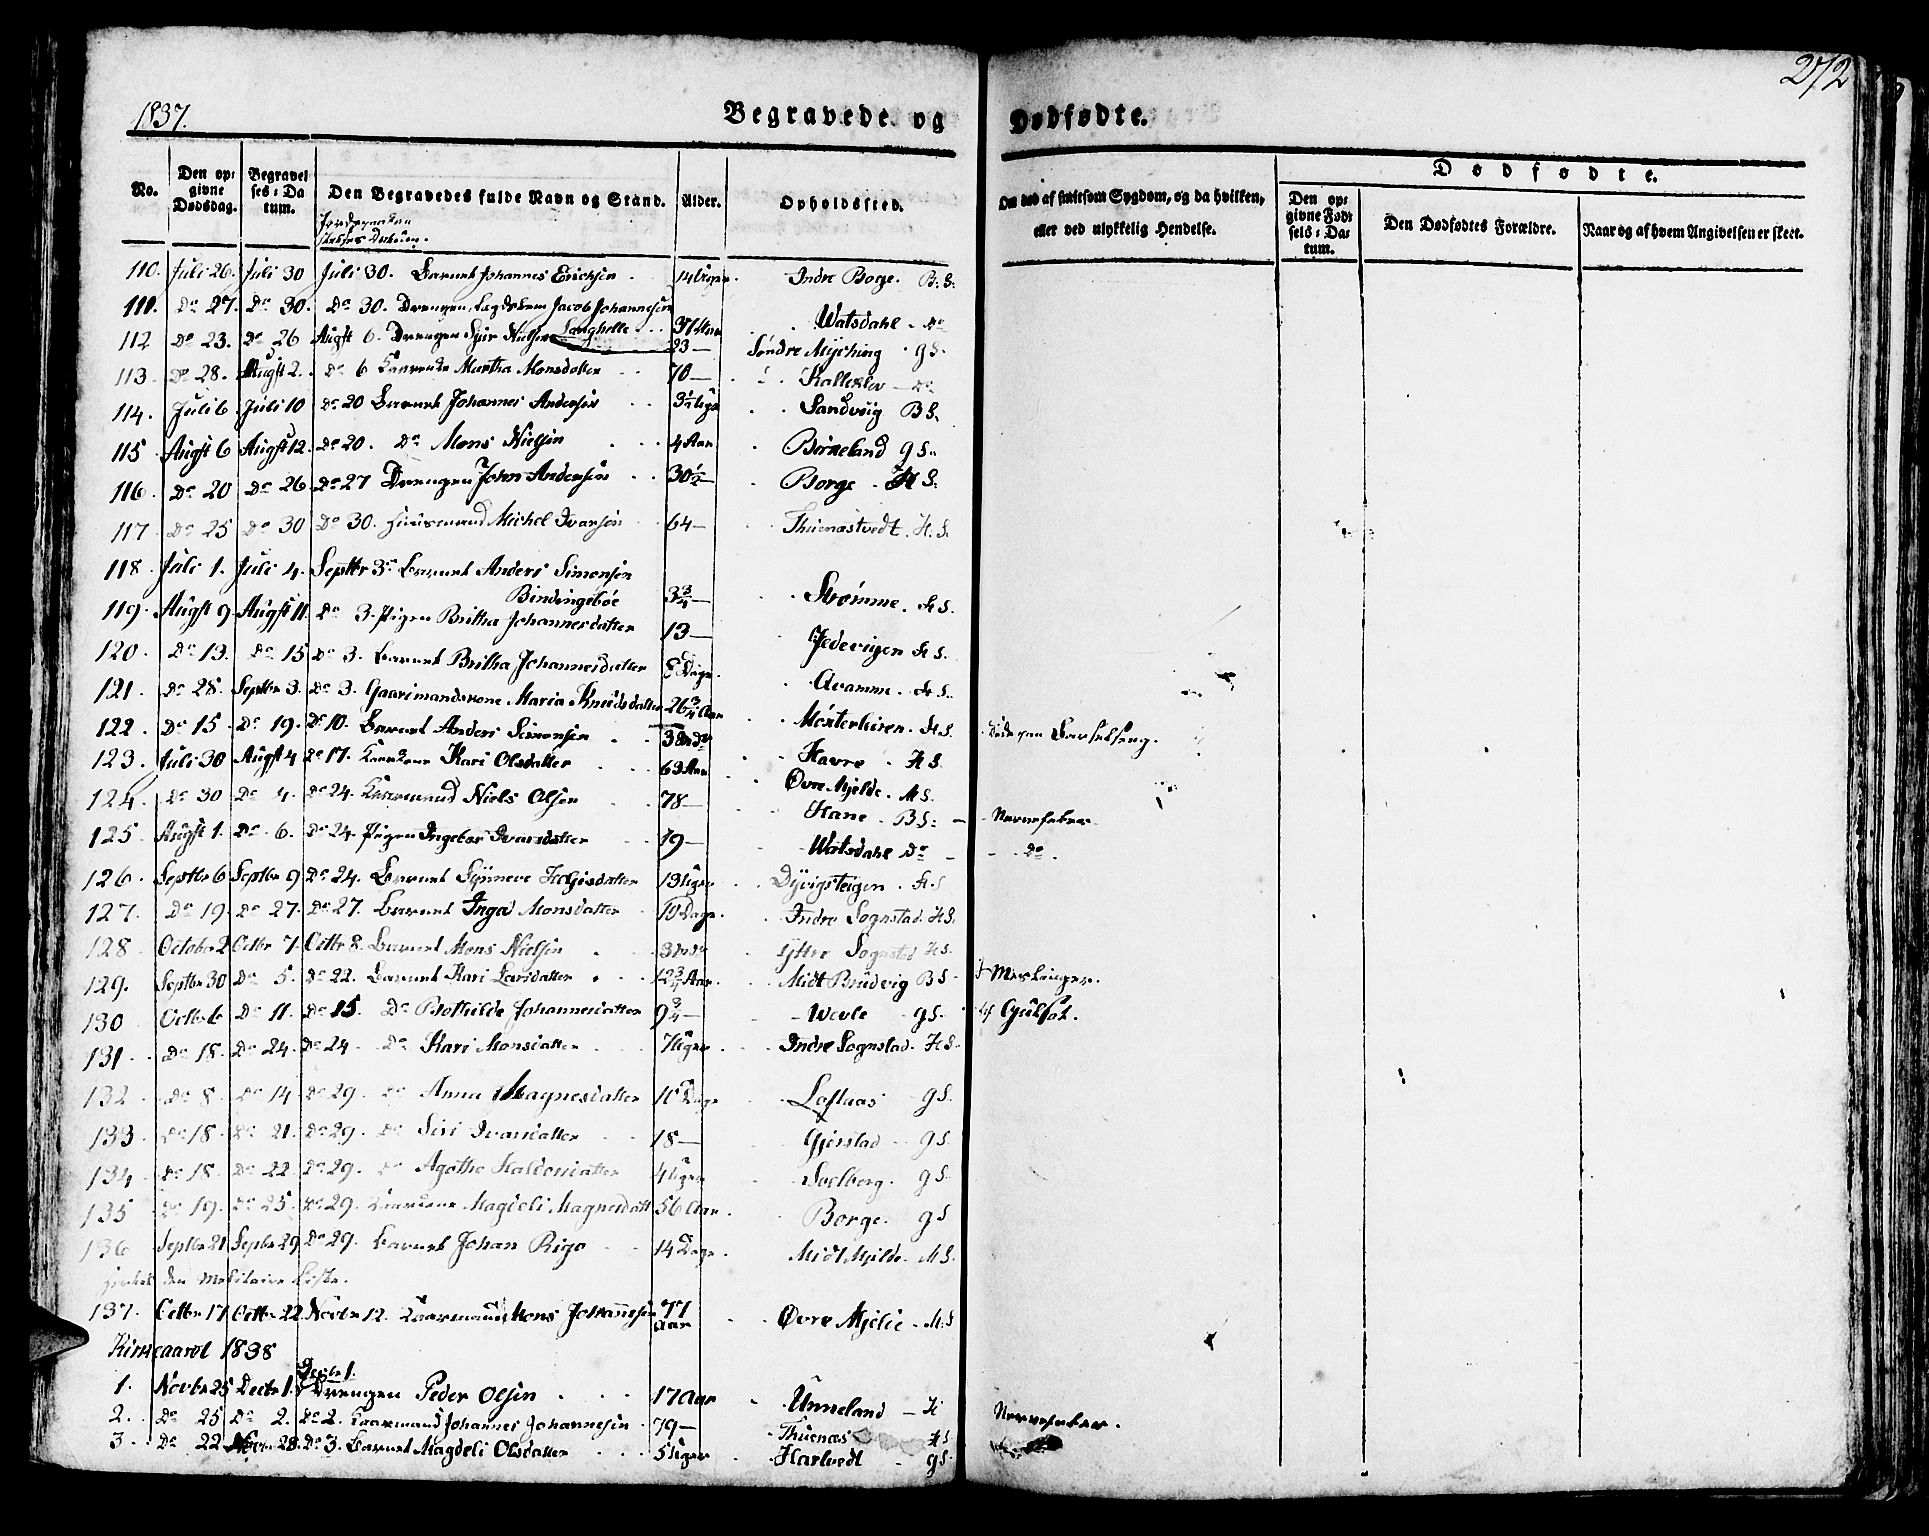 272
1837.
Begravede og Dødfødte.
No.
Den op-
givne
Dødsdag.
Begravel
ses-Da
tum.
Den Begravedes fulde Navn og Stand.
Alder.
Opholdssted.
Om død af smitsom Sygdom, og da hvilken,
eller ved ulykkelig Hendelse.
Dødfødte.
Den op-
givne Født
sels-Da-
tum.
Den Dødfødtes Forældre.
Naar og af hvem Angivelsen er skeet.
110. Juli 26. Juli 30 Juli 30. Barnet Johannes Erichsen 14 Uger Indre Borge. B: S:
111. Do 27. Do 30. Do 30. Drengen Jacob Johannesen
Langhelle 37 Aar Watsdahl Do
112 Do 23. Do 26 Augst 6. Drengen Nielsen 23 — Søndre Mjelching g S.
113. Do 28. Augst 2. Do 6 Martha Monsdatter 70 — Do
114. Juli 6 Juli 10 Do 20 Barnet Johannes Andersen 3½ Uge Sandvig B S.
115 Augst 6 Augst 12. Do 20. Do Mons Nielsen 4 Aar Birkeland g S.
116. Do 20 Do 26 Do 27 Drengen John Andersen 30½ — Borge H S.
117 Do 25 Do 30 Do 30. Huusmand Michel Ivarsen 64 — Thuenæstvedt. H. S.
118. Juli 1. Juli 4. Septbr 3. Barnet Anders Simonsen
Bindingsbøe 3¾ — Strømme. H S.
119. Augst 9 Augst 11. Do 3. Pigen Britha Johannesdatter 13 — H S.
120. Do 13. Do 15 Do 3. Barnet Britha Johannesdatter 8 Dage Qvamme. H S.
121. Do 28. Septbr 3. Do 3. Gaardmandskone Maria Knudsdatter 26¾ Aar H S. Døde paa Barselseng.
122. Do 15 Do 19. Do 10. Barnet Anders Simonsen Havre H S.
123. Juli 30 Augst 4 Do 17. Kari Olsdatter 63 Aar Øvre Mjelde. M S.
124. Do 30 Do 4. Do 24. Kaarmand Niels Olsen 78 — Hane B S: Nervefeber.
125. Augst 1. Do 6. Do 24. Pigen Ingebor Ivarsdatter 19 — Watsdahl Do Do.
126. Septbr 6 Septbr 9 Do 24. Barnet Synneve Helgisdatter 13 Uger Dyvigsteigen. H S
127. Do 19. Do 27. Do 27. Barnet Inga Monsdatter 10 Dage Indre Sognstad. H S.
128 October 2 Octbr 7. Octbr 8. Barnet Mons Nielsen Yttre Sognstad H S.
129. Septbr 30 Do 5. Do 22. Barnet Kari Larsdatter 12¾ Aar Midt Brudvig B S. Meslinger.
130 Octbr 6 Do 11. Do 15. Do Bothilde Johannesdatter 9¾ — Wevle g S. Af Guulsot.
131. Do 18. Do 24. Do 24. Do Kari Monsdatter 7 Uger Indre Sognstad. H S.
132 Do 8. Do 14 Do 29. Do Anna Magnesdatter 10 Dage Loftaas g S.
133 Do 18. Do 21. Do 29. Do Siri Ivarsdatter 18 — Gjerstad g S.
134 Do 18. Do 22 Do 29. Do Agathe Haldorsdatter 4 Uger Soelberg. g S.
135 Do 19. Do 25. Do 29. Magdeli Magnesdatt 56 Aar Borge. g S
136 Septbr 21 Septbr 29 Do 29. Barnet Johan Rige 14 Dage Midt Mjelde. M S.
den Militaire Liste.
137. Octbr 17. Octbr 22 Novbr 12. Kaarmand Mons Johannesen 77
Aar Øvre Mjelde M: S
Kirkeaaret 1838
1. Novbr 25 Decbr 1. Decbr 1. Drengen Peder Olsen 17 Aar Unneland H
2. Do 25 Do 2. Do 2. Kaarmand Johannes Johannesen 79 — Thuenæs H S Nervefeber.
3 Do 22 Novbr 28. Do 3. Barnet Magdeli Olsdatter 5 Uger Hartvedt g S.